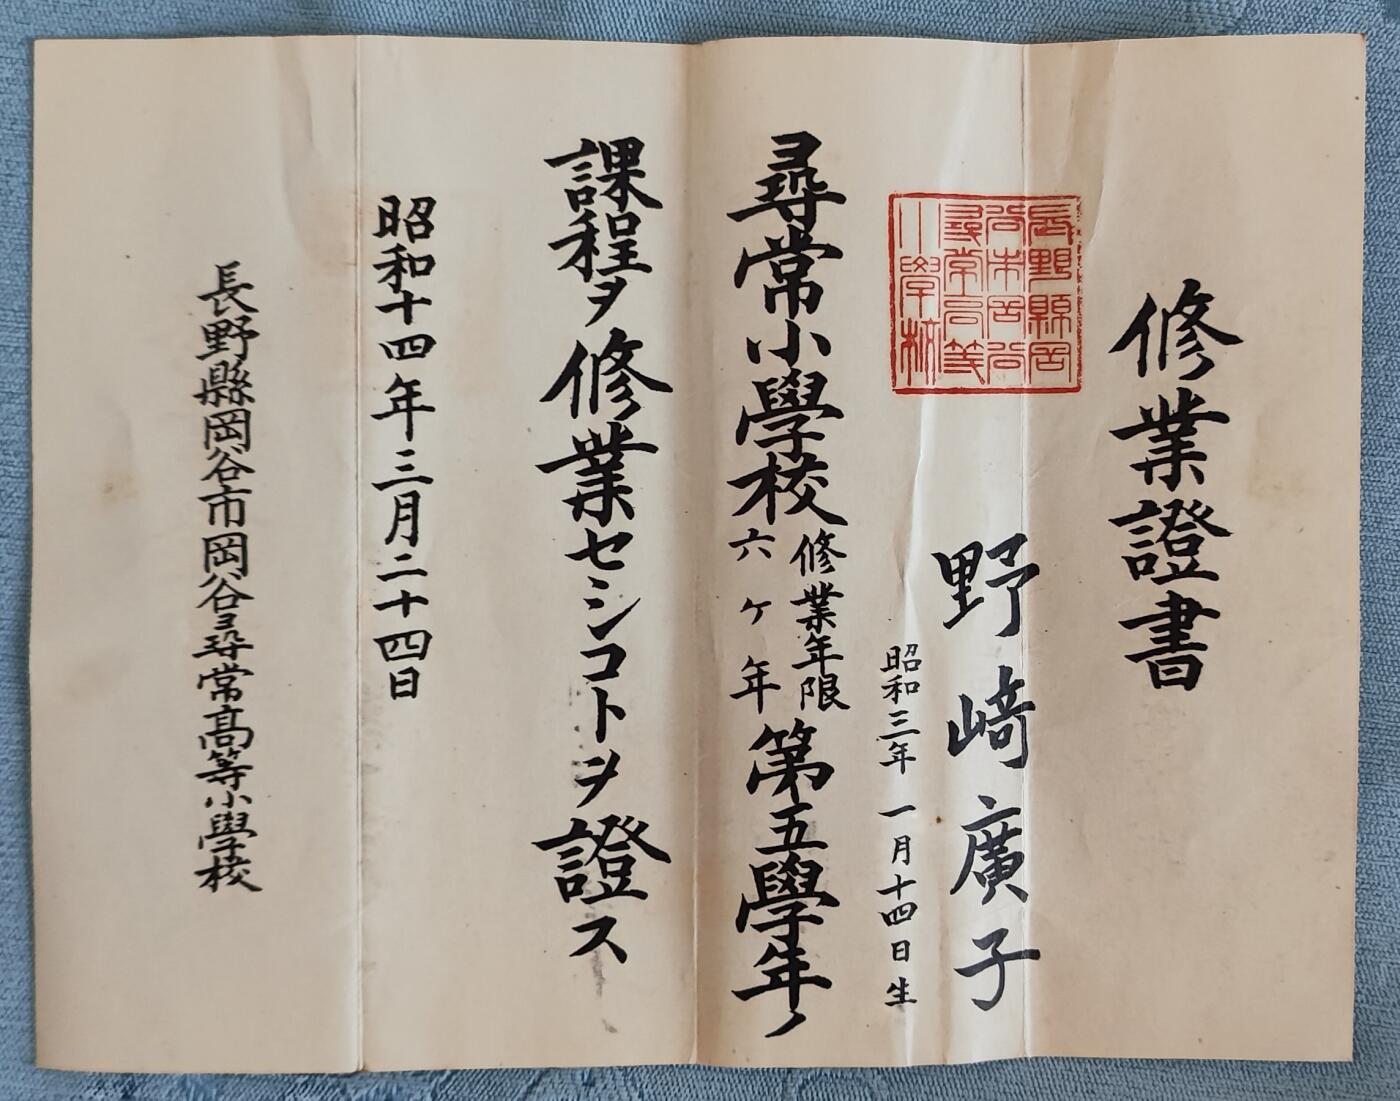 修業證書
長野縣岡
谷市岡谷
尋常高等
小學校
野﨑廣子
昭和三年一月十四日生
尋常小學校修業年限六ヶ年第五學年ノ
課程ヲ修業セシコトヲ證ス
昭和十四年三月二十四日
長野縣岡谷市岡谷尋常高等小學校